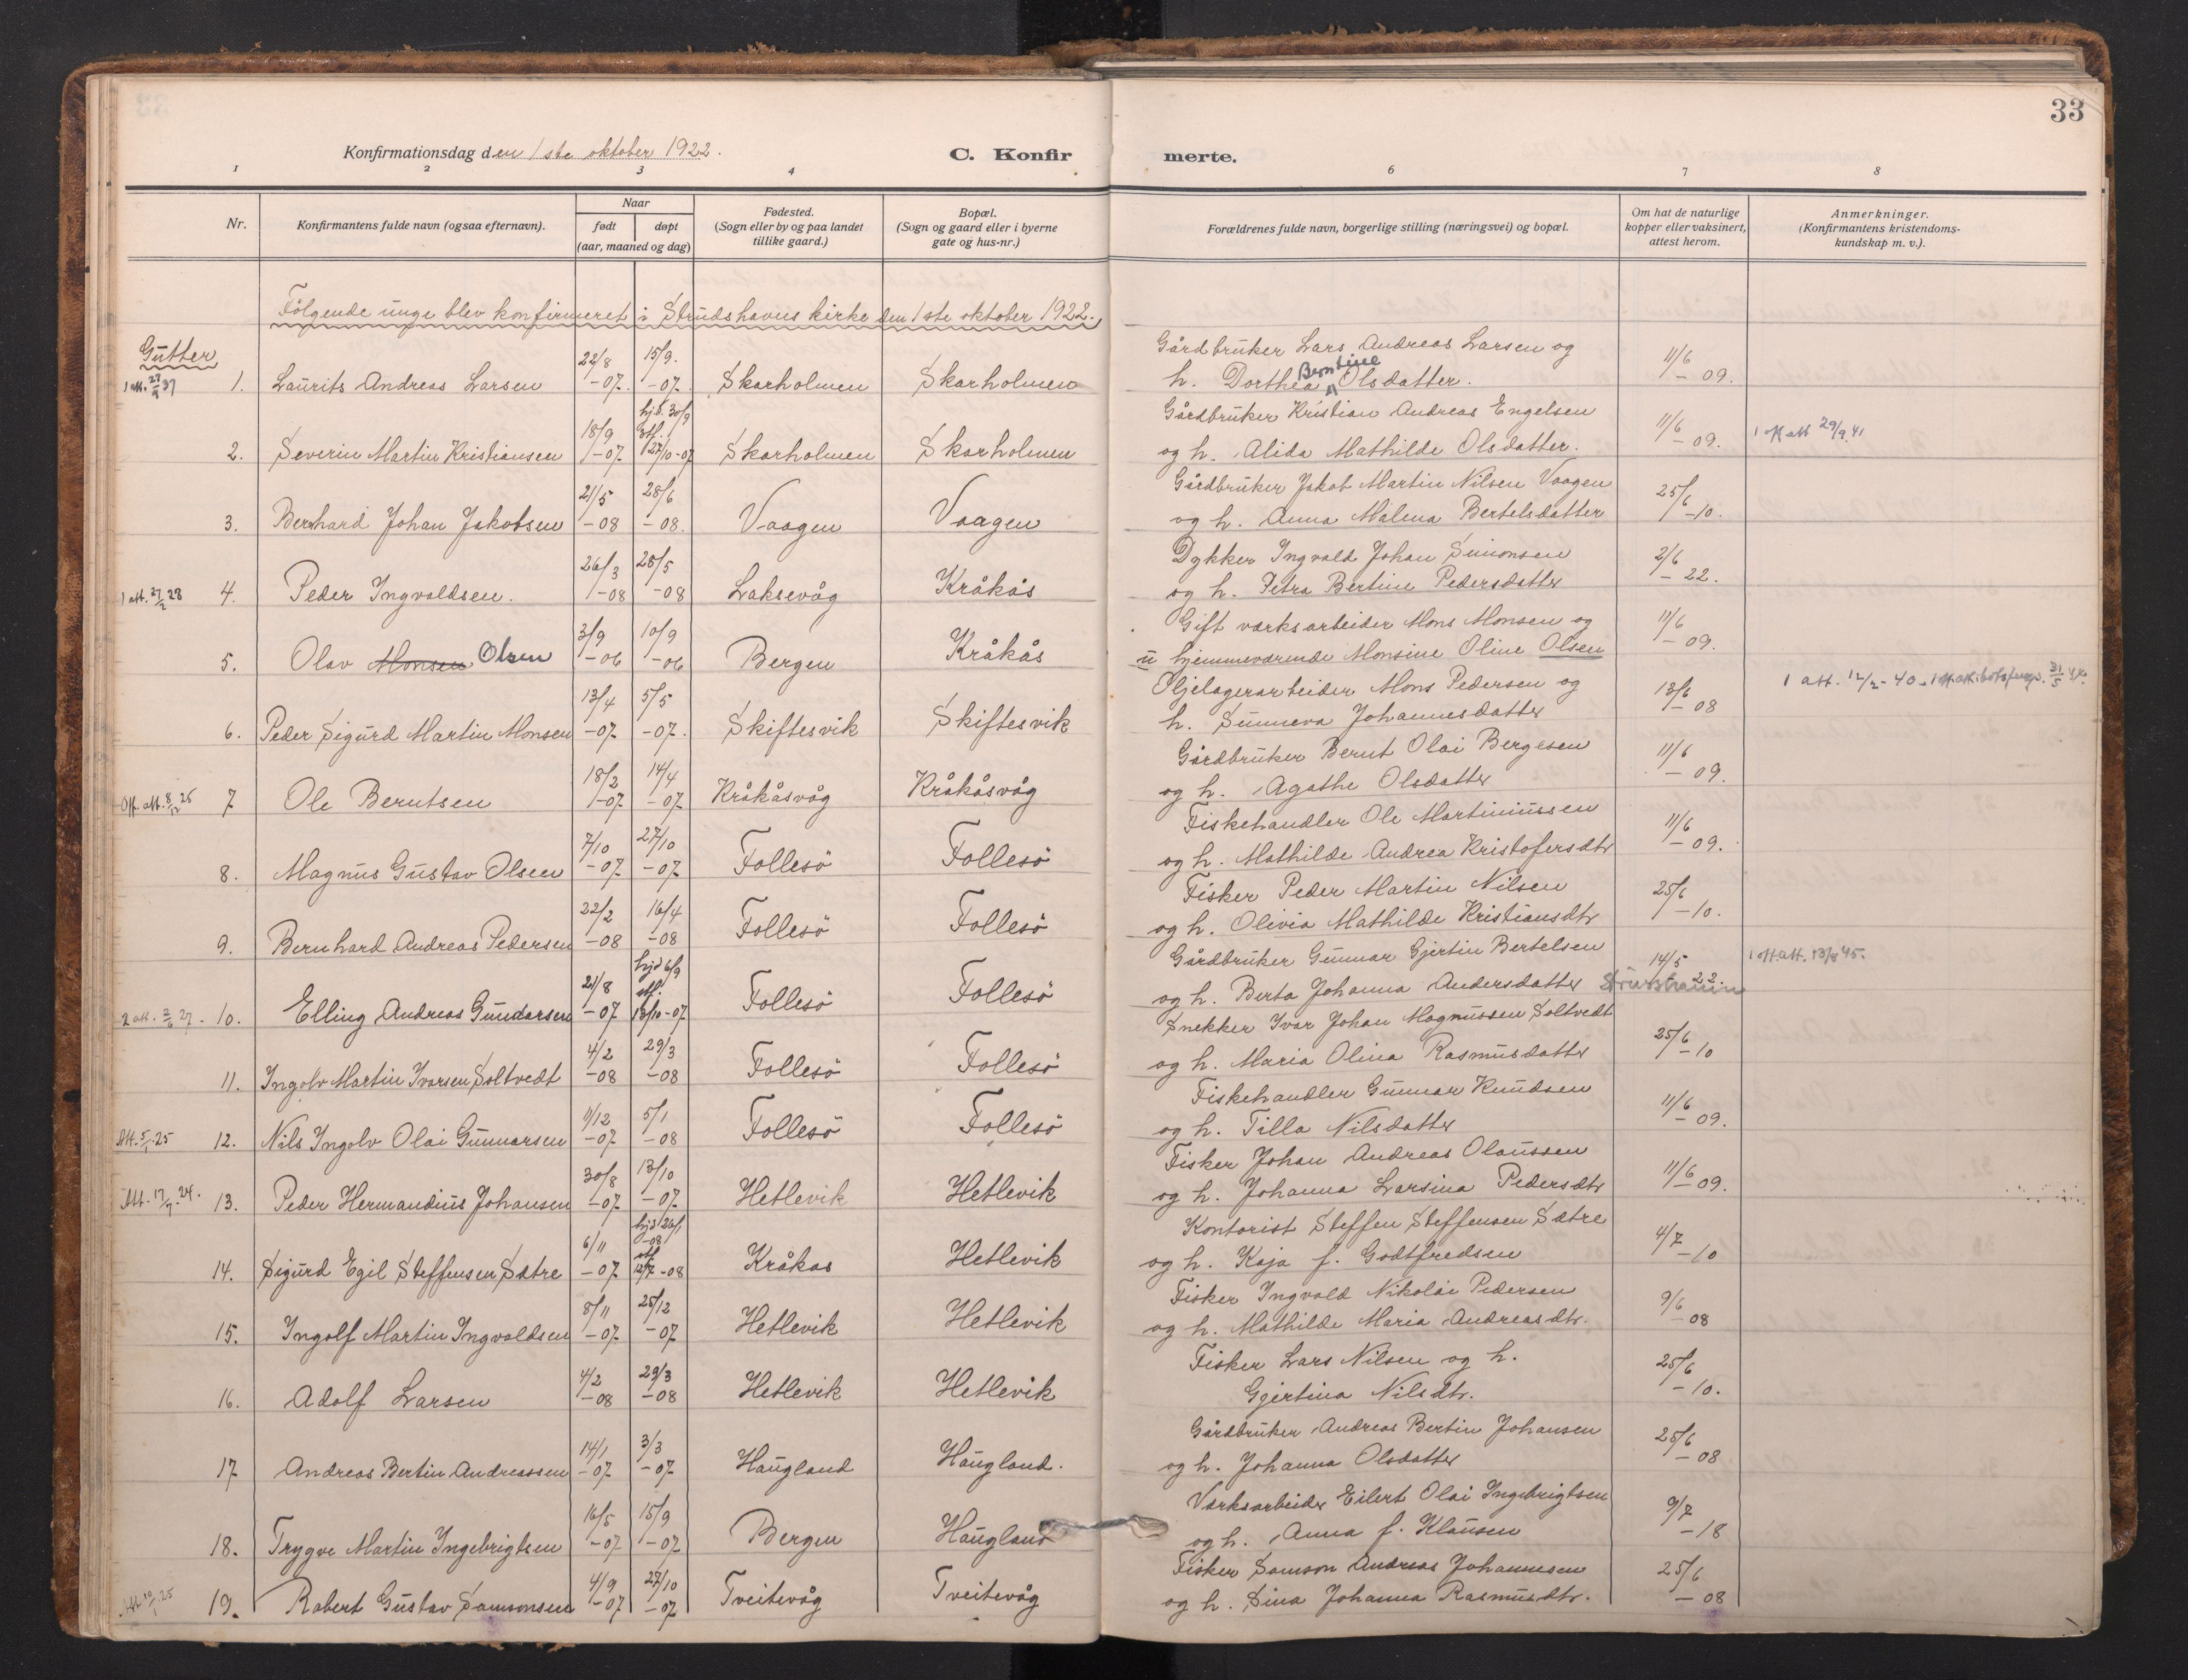 33
Konfirmationsdag den 1ste oktober 1922.
C. Konfirmerte.
1 2 3 4 6 7 8
Nr.
Konfirmantens fulde navn (ogsaa efternavn).
Naar
født døpt
(aar, maaned og dag)
Fødested.
(Sogn eller by og paa landet
tillike gaard.)
Bopæl.
(Sogn og gaard eller i byerne
gate og hus-nr.)
Forældrenes fulde navn, borgerlige stilling (næringsvei) og bopæl.
Om hat de naturlige
kopper eller vaksinert,
attest herom.
Anmerkninger.
(Konfirmantens kristendoms-
kundskap m. v.).
Følgende unge blev konfirmeret i Strudshavns kirke den 1ste oktober 1922.
Gutter
1. Laurits Andreas Larsen 22/8 -07. 15/9. -07. Skarholmen Skarholmen Gårdbruker Lars Andreas Larsen og h. Dorthea Berntine Olsdatter. 11/6 - 09.
2. Severin Martin Kristiansen 18/9 -07. hjd. 30/9 stf. 27/10-07 Skarholmen Skarholmen Gårdbruker Kristian Andreas Engelsen og h. Alida Mathilde Olsdatter. 11/6 - 09. 1 off att 29/9.41
3. Bernhard Johan Jakobsen 21/5 -08 28/6 -08. Vaagen Vaagen Gårdbruker Jakob Martin Nilsen Vaagen og h. Anna Malena Bertelsdatter 25/6 -10.
1 att. 27/2 28 4. Peder Ingvaldsen. 26/3 -08 28/5 -08 Laksevåg Kråkås Dykker Ingvald Johan Simonsen og h. Petra Bertine Pedersdatter 2/6 - 22.
5. Olav Monsen Olsen 3/9 -06 10/9 -06 Bergen Kråkås Gift værksarbeider Mons Monsen og u hjemmeværende Monsine Oline Olsen 11/6 - 09.
6. Peder Sigurd Martin Monsen 13/4 -07. 5/5 -07. Skiftesvik Skiftesvik Oljelagerarbeider Mons Pedersen og h. Sunneva Johannesdatter 13/6 - 08 1 att. 12/2-40.
Off. att. 8/12 25 7 Ole Berntsen 18/2 -07. 14/4 -07. Kråkåsvåg Kråkåsvåg Gårdbruker Bernt Olai Bergesen og h. Agathe Olsdatter 11/6 - 09.
8. Magnus Gustav Olsen 7/10 -07. 27/10 -07. Follesö Follesö Fiskehandler Ole Martiniussen og h. Mathilde Andrea Kristofersdtr 11/6 - 09.
9. Bernhard Andreas Pedersen 22/2 -08 16/4 -08 Follesö Follesö Fisker Peder Martin Nilsen og h. Olivia Mathilde Kristiansdtr 25/6 -10.
2 att. 2/6 27 - 10. Elling Andreas Gunnarsen 21/8 -07. hjd 6/9 stf. 13/10-07. Follesö Follesö Gårdbruker Gunnar Gjertin Bertelsen og h. Berta Johanna Andersdatter Strusshamn 14/5 22. 1 off att. 13/8 45.
11. Ingolv Martin Ivarsen Soltvedt 4/2 -08 29/3 -08 Follesö Follesö Snekker Ivar Johan Magnussen Soltvedt og h. Maria Olina Rasmusdatter 25/6 -10
Att. 5/1.25 12. Nils Ingolv Olai Gunnarsen 11/12 -07. 5/1 -08 Follesö Follesö Fiskehandler Gunnar Knudsen og h. Tilla Nilsdatter 11/6 - 09.
Att. 17/7.24. 13. Peder Hermandius Johansen 30/8 -07. 13/10 -07. Hetlevik Hetlevik Fisker Johan Andreas Olaussen og h. Johanna Larsina Pedersdtr 11/6 - 09.
14. Sigurd Egil Steffensen Sætre 6/11 -07. hjd 26/1 -08 stf. 12/7 -08 Kråkas Hetlevik Kontorist Steffen Steffensen Sætre og h. Kaja f. Godtfredsen 4/7 -10
15. Ingolf Martin Ingvaldsen 8/11 -07. 25/12 -07. Hetlevik Hetlevik Fisker Ingvald Nikolai Pedersen og h. Mathilde Maria Andreasdtr. 9/6 -08
16. Adolf Larsen 4/2 -08 29/3 -08 Hetlevik Hetlevik Fisker Lars Nilsen og h. Gjertina Nilsdtr. 25/6 -10.
17 Andreas Bertin Andreassen 14/1 -07. 3/3 -07. Haugland Haugland. Gårdbruker Andreas Bertin Johansen og h. Johanna Olsdatter 25/6 -08
18. Trygve Martin Ingebrigtsen 16/5 -07. 15/9 -07. Bergen Haugland Værksarbeider Eilert Olai Ingebrigtsen og h. Anna f. Klausen 9/7 -18
Att. 10/1 25 19. Robert Gustav Samsonsen 4/9 -07 27/10 -07 Tveitevåg Tveitevåg Fisker Samson Andreas Johannesen og h. Sina Johanna Rasmusdtr. 25/6 -08